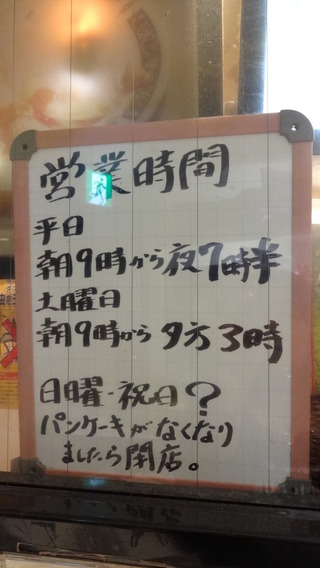 営業時間
平日
朝9時から夜7時半
土曜日
朝9時から夕方3時
日曜・祝日?
パンケーキがなくなり
ましたら閉店。